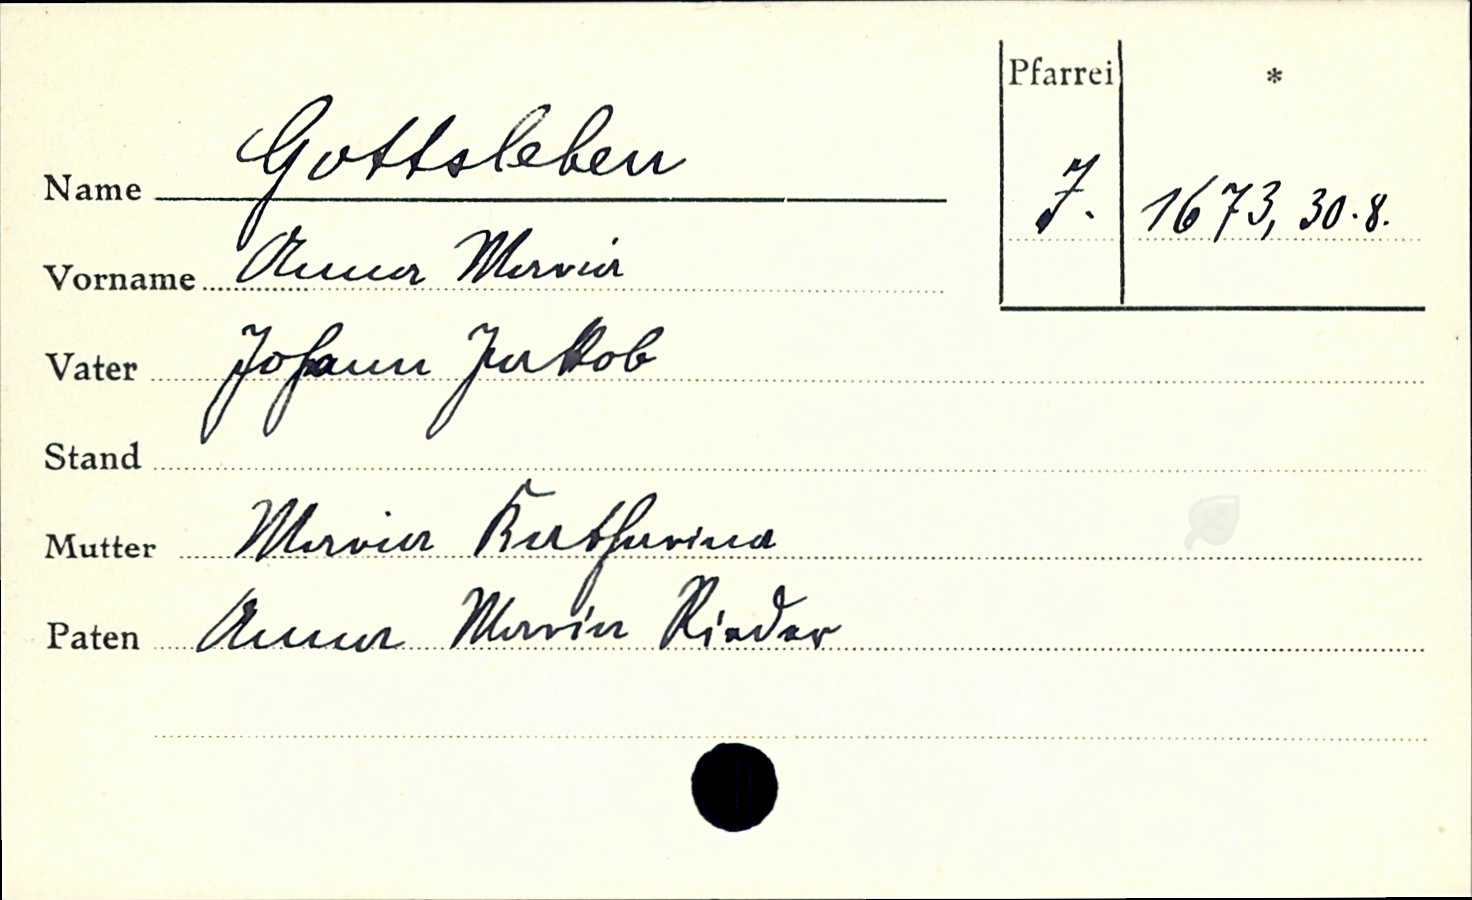 Pfarrei *
Name Gottsleben
J. 1673, 30.8.
Vorname Anna Maria
Vater Johann Jakob
Stand
Mutter Maria Katharina
Paten Anna Maria Rieder